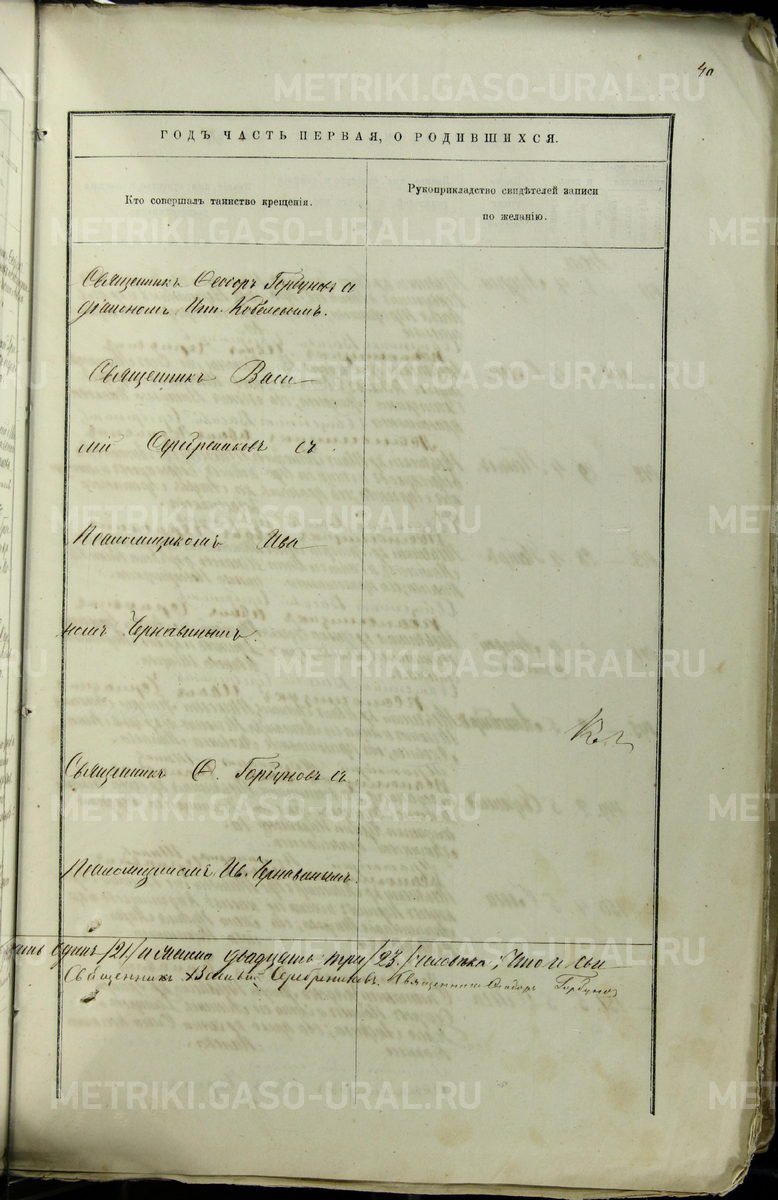 40
ГОДЪ ЧАСТЬ ПЕРВАЯ, О РОДИВШИХСЯ.
Кто совершалъ таинство крещенія.
Рукоприкладство свидѣтелей записи
по желанію.
Священникъ Ѳеодоръ Горбуновъ съ
діакономъ Инн. Кобелевымъ.
Священникъ Васи
лій Серебренниковъ съ
Псаломщикомъ Ива
номъ Чернавинымъ.
Священникъ Ѳ. Горбуновъ съ
Псаломщикомъ Ив. Чернавинымъ.
одинъ /21/ двадцать три /23/ человѣка; что и сви
Священникъ Василій Серебренниковъ. Священникъ Ѳеодоръ Горбунов
METRIKI.GASO-URAL.RU